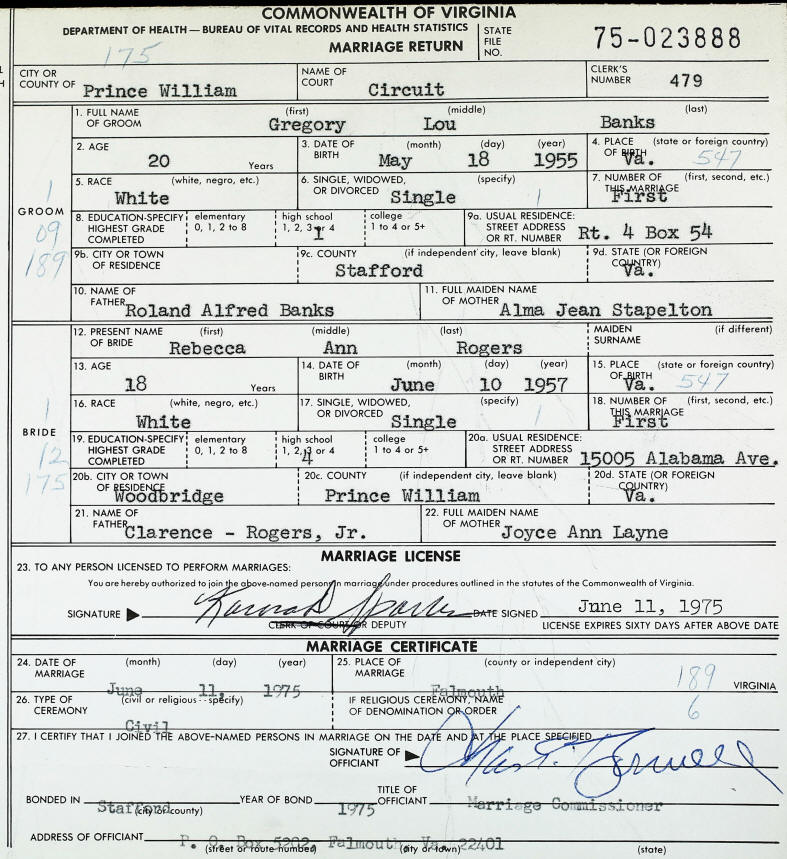 COMMONWEALTH OF VIRGINIA
DEPARTMENT OF HEALTH — BUREAU OF VITAL RECORDS AND HEALTH STATISTICS
175 MARRIAGE RETURN STATE FILE NO. 75-023888
CITY OR COUNTY OF Prince William NAME OF COURT Circuit CLERK'S NUMBER 479
GROOM
1
09
189
1. FULL NAME OF GROOM (first) (middle) (last)
Gregory Lou Banks
2. AGE 20 Years 3. DATE OF BIRTH (month) (day) (year) May 18 1955 4. PLACE OF BIRTH (state or foreign country) Va. 547
5. RACE (white, negro, etc.) White 6. SINGLE, WIDOWED, OR DIVORCED (specify) Single 1 7. NUMBER OF THIS MARRIAGE (first, second, etc.) First
8. EDUCATION-SPECIFY HIGHEST GRADE COMPLETED elementary 0, 1, 2 to 8 high school 1, 2, 3 or 4 1 college 1 to 4 or 5+ 9a. USUAL RESIDENCE: STREET ADDRESS OR RT. NUMBER Rt. 4 Box 54
9b. CITY OR TOWN OF RESIDENCE 9c. COUNTY (if independent city, leave blank) Stafford 9d. STATE (OR FOREIGN COUNTRY) Va.
10. NAME OF FATHER Roland Alfred Banks 11. FULL MAIDEN NAME OF MOTHER Alma Jean Stapelton
BRIDE
1
12
175
12. PRESENT NAME OF BRIDE (first) (middle) (last) MAIDEN SURNAME (if different)
Rebecca Ann Rogers
13. AGE 18 Years 14. DATE OF BIRTH (month) (day) (year) June 10 1957 15. PLACE OF BIRTH (state or foreign country) Va. 547
16. RACE (white, negro, etc.) White 17. SINGLE, WIDOWED, OR DIVORCED (specify) Single 1 18. NUMBER OF THIS MARRIAGE (first, second, etc.) First
19. EDUCATION-SPECIFY HIGHEST GRADE COMPLETED elementary 0, 1, 2 to 8 high school 1, 2, 3 or 4 4 college 1 to 4 or 5+ 20a. USUAL RESIDENCE: STREET ADDRESS OR RT. NUMBER 15005 Alabama Ave.
20b. CITY OR TOWN OF RESIDENCE Woodbridge 20c. COUNTY (if independent city, leave blank) Prince William 20d. STATE (OR FOREIGN COUNTRY) Va.
21. NAME OF FATHER Clarence - Rogers, Jr. 22. FULL MAIDEN NAME OF MOTHER Joyce Ann Layne
MARRIAGE LICENSE
23. TO ANY PERSON LICENSED TO PERFORM MARRIAGES:
You are hereby authorized to join the above-named persons in marriage under procedures outlined in the statutes of the Commonwealth of Virginia.
SIGNATURE DATE SIGNED June 11, 1975
CLERK OF COURT OR DEPUTY LICENSE EXPIRES SIXTY DAYS AFTER ABOVE DATE
MARRIAGE CERTIFICATE
24. DATE OF MARRIAGE (month) (day) (year) June 11, 1975 25. PLACE OF MARRIAGE (county or independent city) Falmouth 189 VIRGINIA
26. TYPE OF CEREMONY (civil or religious--specify) Civil IF RELIGIOUS CEREMONY, NAME OF DENOMINATION OR ORDER 6
27. I CERTIFY THAT I JOINED THE ABOVE-NAMED PERSONS IN MARRIAGE ON THE DATE AND AT THE PLACE SPECIFIED
SIGNATURE OF OFFICIANT
BONDED IN Stafford (city or county) YEAR OF BOND 1975 TITLE OF OFFICIANT Marriage Commissioner
ADDRESS OF OFFICIANT P. O. Box 5202, Falmouth, Va. 22401
(street or route number) (city or town) (state)